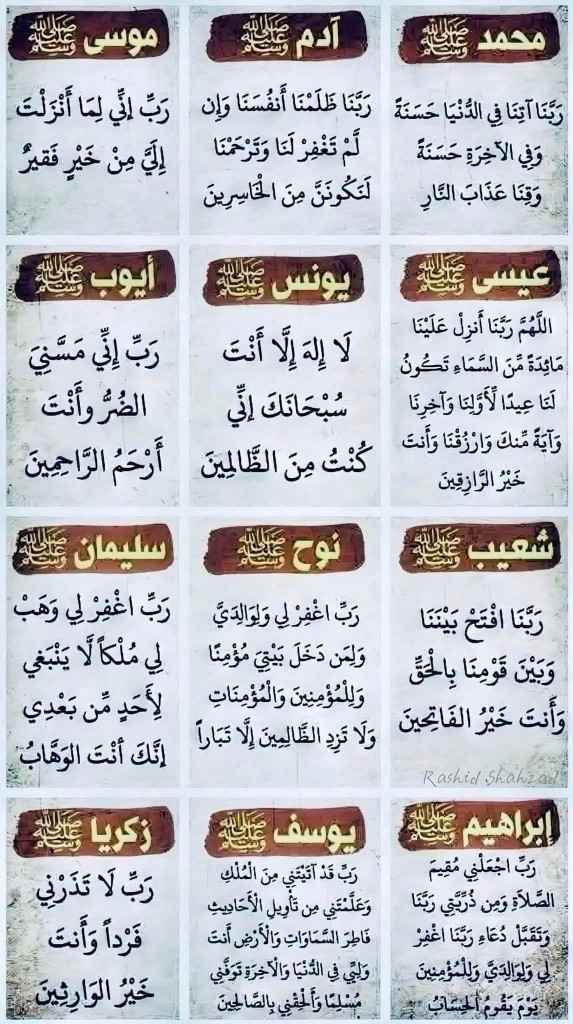 محمد صَلَّى اللهُ عَلَيْهِ وَسَلَّمَ
رَبَّنَا آتِنَا فِي الدُّنْيَا حَسَنَةً
وَفِي الآخِرَةِ حَسَنَةً
وَقِنَا عَذَابَ النَّارِ
آدم صَلَّى اللهُ عَلَيْهِ وَسَلَّمَ
رَبَّنَا ظَلَمْنَا أَنفُسَنَا وَإِن
لَّمْ تَغْفِرْ لَنَا وَتَرْحَمْنَا
لَنَكُونَنَّ مِنَ الْخَاسِرِينَ
موسى صَلَّى اللهُ عَلَيْهِ وَسَلَّمَ
رَبِّ إِنِّي لِمَا أَنْزَلْتَ
إِلَيَّ مِنْ خَيْرٍ فَقِيرٌ
عيسى صَلَّى اللهُ عَلَيْهِ وَسَلَّمَ
اللَّهُمَّ رَبَّنَا أَنزِلْ عَلَيْنَا
مَائِدَةً مِّنَ السَّمَاءِ تَكُونُ
لَنَا عِيدًا لِّأَوَّلِنَا وَآخِرِنَا
وَآيَةً مِّنكَ وَارْزُقْنَا وَأَنتَ
خَيْرُ الرَّازِقِينَ
يونس صَلَّى اللهُ عَلَيْهِ وَسَلَّمَ
لَا إِلهَ إِلَّا أَنْتَ
سُبْحَانَكَ إِنِّي
كُنْتُ مِنَ الظَّالِمِينَ
أيوب صَلَّى اللهُ عَلَيْهِ وَسَلَّمَ
رَبِّ إِنِّي مَسَّنِيَ
الضُرُّ وأَنْتَ
أَرْحَمُ الرَّاحِمِينَ
شعيب صَلَّى اللهُ عَلَيْهِ وَسَلَّمَ
رَبَّنَا افْتَحْ بَيْنَنَا
وَبَيْنَ قَوْمِنَا بِالْحَقِّ
وَأَنتَ خَيْرُ الفَاتِحِينَ
Rashid Shahzad
نوح صَلَّى اللهُ عَلَيْهِ وَسَلَّمَ
رَبِّ اغْفِرْ لِي وَلِوَالِدَيَّ
وَلِمَن دَخَلَ بَيْتِيَ مُؤْمِنًا
وَلِلْمُؤْمِنِينَ وَالْمُؤْمِنَاتِ
وَلَا تَزِدِ الظَّالِمِينَ إِلَّا تَبَاراً
سليمان صَلَّى اللهُ عَلَيْهِ وَسَلَّمَ
رَبِّ اغْفِرْ لِي وَهَبْ
لِي مُلْكاً لَّا يَنْبَغِي
لِأَحَدٍ مِّن بَعْدِي
إِنَّكَ أنْتَ الوَهَّابُ
إبراهيم صَلَّى اللهُ عَلَيْهِ وَسَلَّمَ
رَبِّ اجْعَلْنِي مُقِيمَ
الصَّلاَةِ وَمِن ذُرِّيَّتِي رَبَّنَا
وَتَقَبَّلْ دُعَاءِ رَبَّنَا اغْفِرْ
لِي وَلِوَالِدَيَّ وَلِلْمُؤْمِنِينَ
يَوْمَ يَقُومُ الْحِسَابُ
يوسف صَلَّى اللهُ عَلَيْهِ وَسَلَّمَ
رَبِّ قَدْ آتَيْتَنِي مِنَ الْمُلْكِ
وَعَلَّمْتَنِي مِن تَأْوِيلِ الْأَحَادِيثِ
فَاطِرَ السَّمَاوَاتِ وَالْأَرْضِ أَنتَ
وَلِيِّي فِي الدُّنْيَا وَالآخِرَةِ تَوَفَّنِي
مُسْلِمًا وَأَلْحِقْنِي بِالصَّالِحِينَ
زكريا صَلَّى اللهُ عَلَيْهِ وَسَلَّمَ
رَبِّ لَا تَذَرْنِي
فَرْداً وَأَنتَ
خَيْرُ الوَارِثِينَ